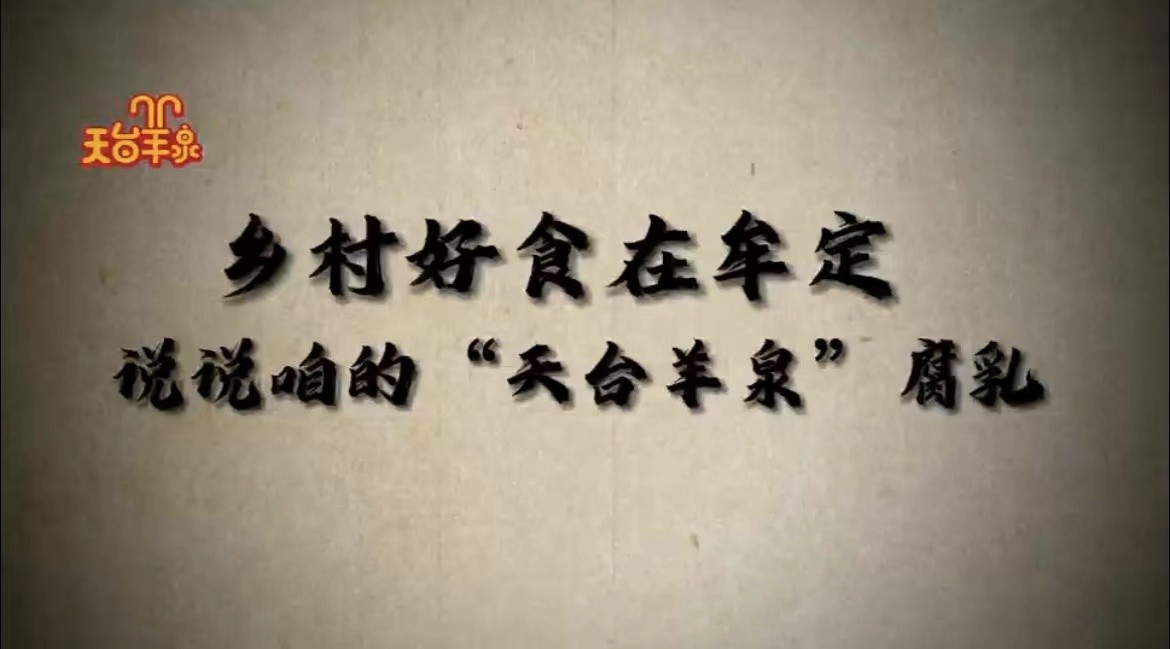 天台羊泉
乡村好食在牟定
说说咱的“天台羊泉”腐乳